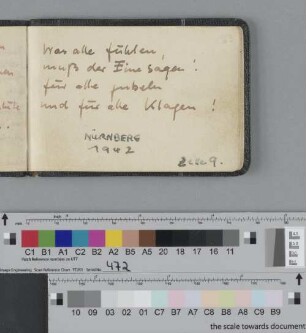 Was alle fühlen,
muß der Eine sagen!
für alle jubeln
und für alle Klagen!
NÜRNBERG
1942
C1 B1 A1 C2 B2 A2 B5 A5 20 18 17 16 11
472
10 09 03 02 01 C7 B7 A7 C8 B8 A8 C9 B9
the scale towards document